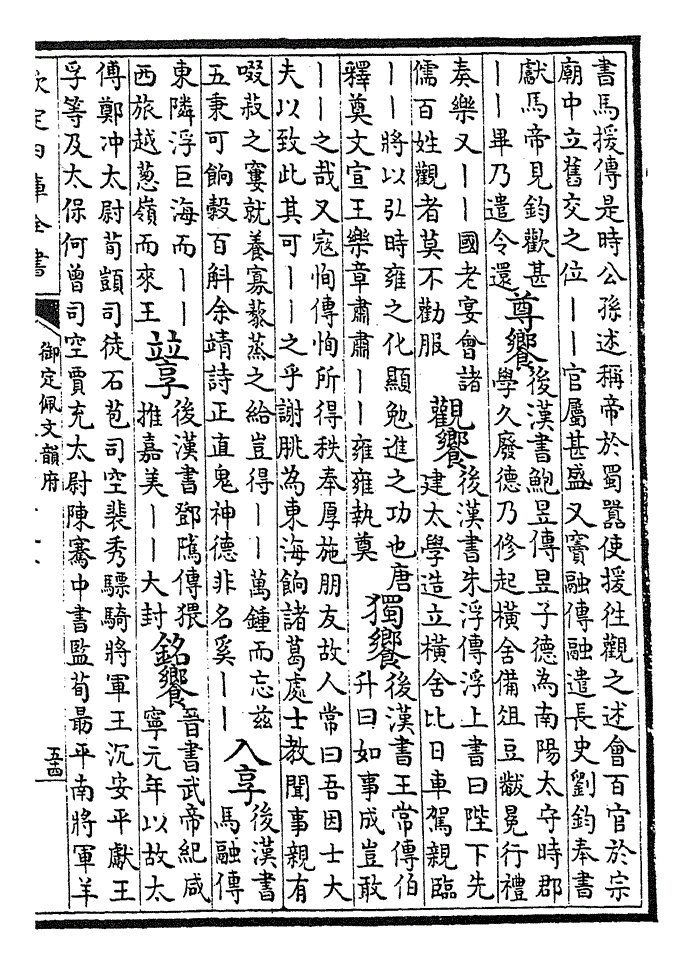 書馬援傳是時公孫述稱帝於蜀囂使援往觀之述會百官於宗
廟中立舊交之位丨丨官屬甚盛又竇融傳融遣長史劉鈞奉書
獻馬帝見鈞歡甚
丨丨畢乃遣令還
尊饗
後漢書鮑昱傳昱子德為南陽太守時郡
學久廢德乃修起橫舍備俎豆黻冕行禮
奏樂又丨丨國老宴會諸
儒百姓觀者莫不勸服
觀饗
後漢書朱浮傳浮上書曰陛下先
建太學造立橫舍比日車駕親臨
丨丨將以弘時雍之化顯勉進之功也唐
釋奠文宣王樂章肅肅丨丨雍雍執奠
獨饗
後漢書王常傳伯
升曰如事成豈敢
丨丨之哉又寇恂傳恂所得秩奉厚施朋友故人常曰吾因士大
夫以致此其可丨丨之乎謝朓為東海餉諸葛處士教聞事親有
啜菽之寠就養寡藜蒸之給豈得丨丨萬鍾而忘茲
五秉可餉穀百斛余靖詩正直鬼神德非名奚丨丨
入享
後漢書
馬融傳
東隣浮巨海而丨丨
西旅越葱嶺而來王
並享
後漢書鄧騭傳猥
推嘉美丨丨大封
銘饗
晉書武帝紀咸
寧元年以故太
傅鄭冲太尉荀顗司徒石苞司空裴秀驃騎將軍王沉安平獻王
孚等及太保何曾司空賈充太尉陳騫中書監荀勗平南將軍羊
欽定四庫全書
御定佩文韻府
五四